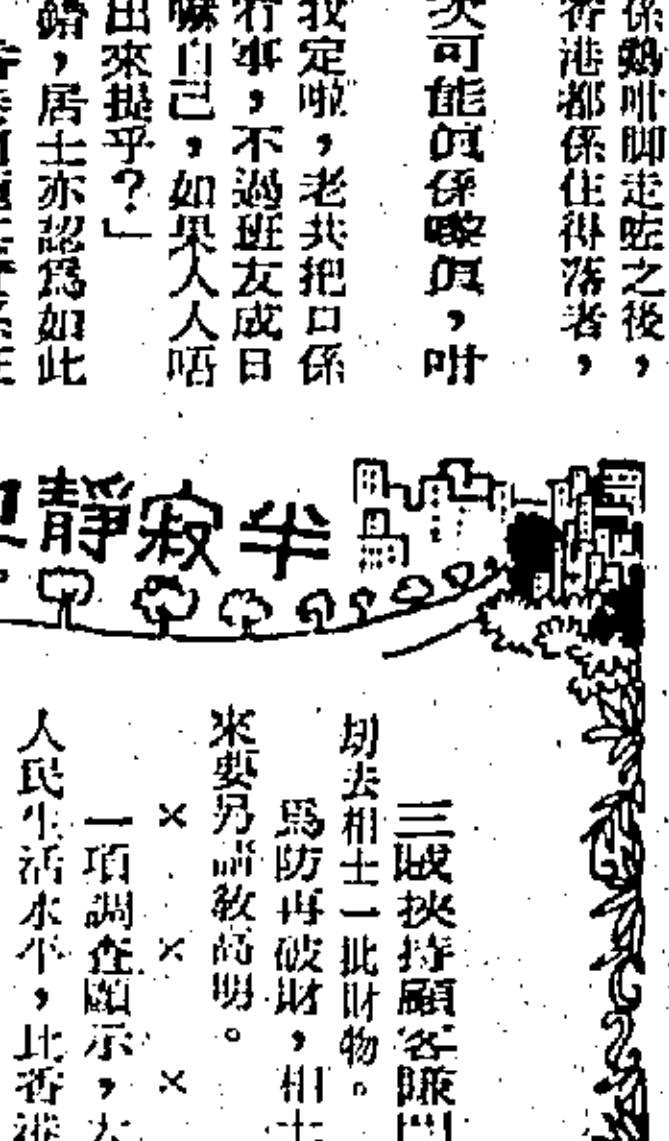 係鷄咁脚走咗之後，
香港都係住得落者，
次可能眞係嚟眞，咁
我定啦，老共把口係
冇事，不過班友成日
嚇自己，如果人人唔
出來提乎？」
錯，居士亦認爲如此
半寂靜
三賊挾持顧客賺門
刧去相士一批財物。
爲防再破財，相士
來要另請敎高明。
× × ×
一項調查顯示，大
人民生活水平，比香港